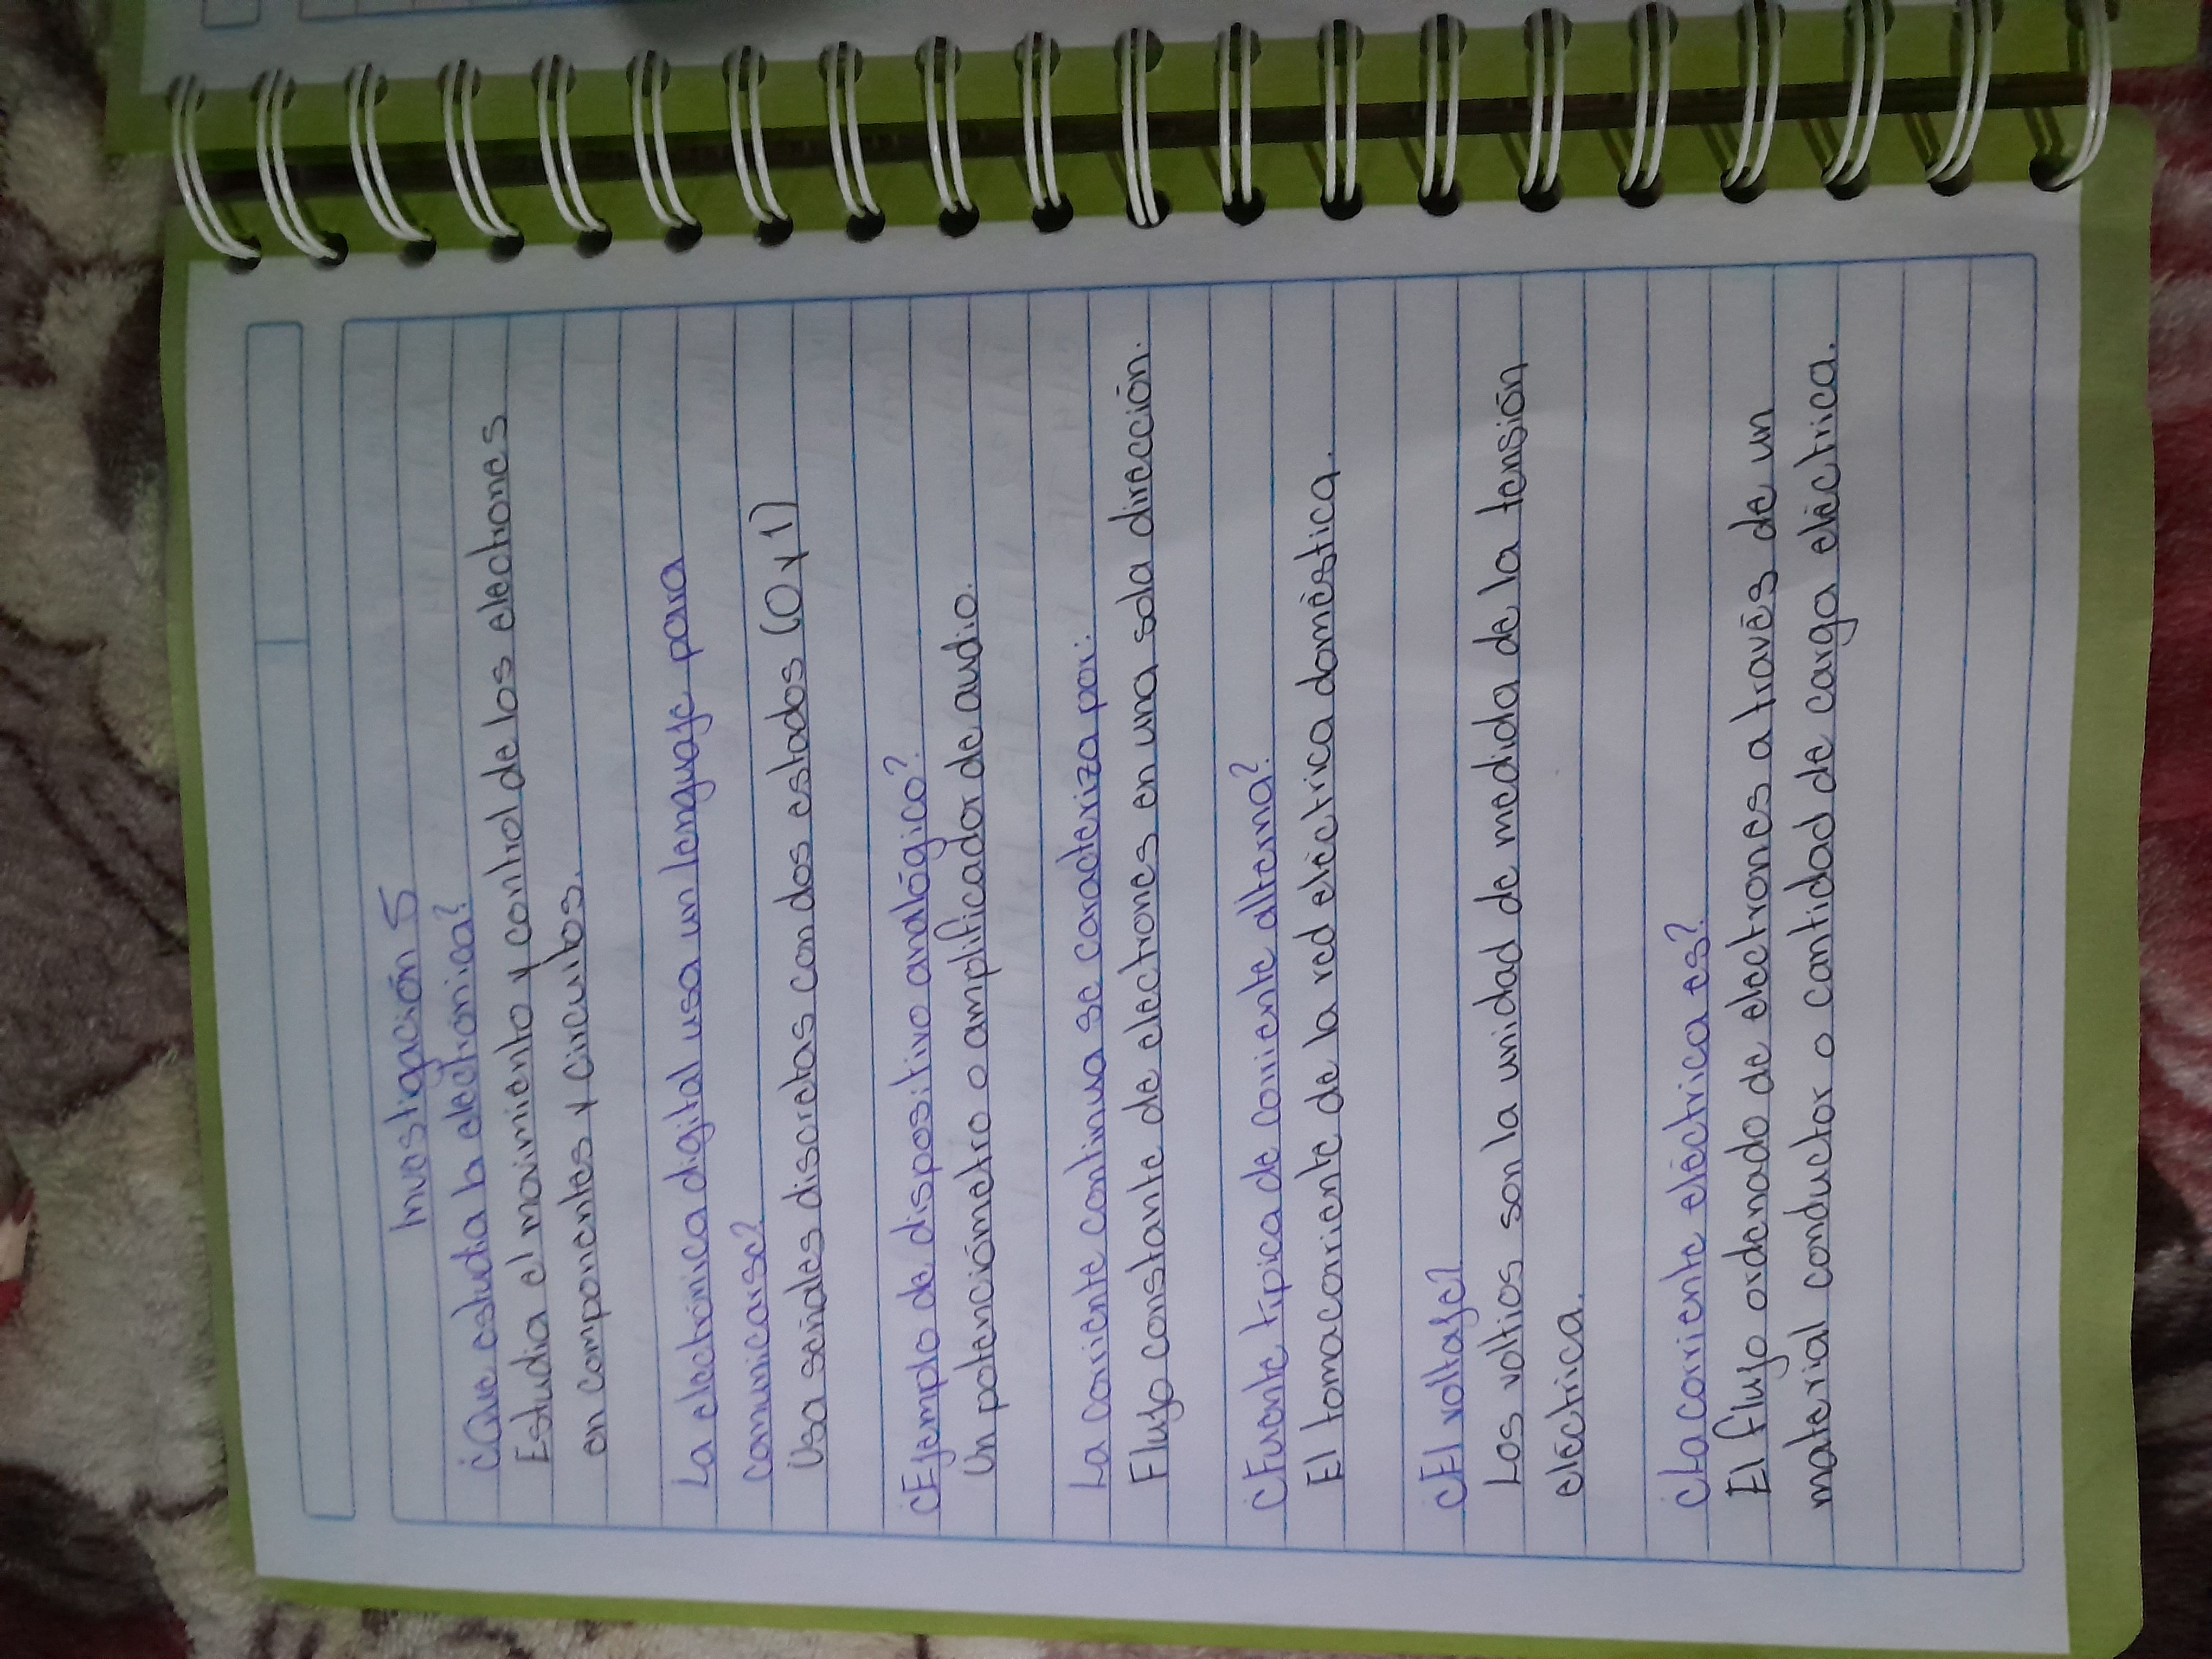 Investigación 5
¿Que estudia la electrónica?
Estudia el movimiento y control de los electrones
en componentes y circuitos.
La electrónica digital usa un lenguaje para
comunicarse?
Usa señales discretas con dos estados (0 y 1)
¿Ejemplo de dispositivo analógico?
Un potenciómetro o amplificador de audio.
La corriente continua se caracteriza por:
Flujo constante de electrones en una sola dirección.
¿Fuente típica de corriente alterna?
El tomacorriente de la red eléctrica doméstica.
¿El voltaje?
Los voltios son la unidad de medida de la tensión
eléctrica.
¿La corriente eléctrica es?
El flujo ordenado de electrones a través de un
material conductor o cantidad de carga eléctrica.